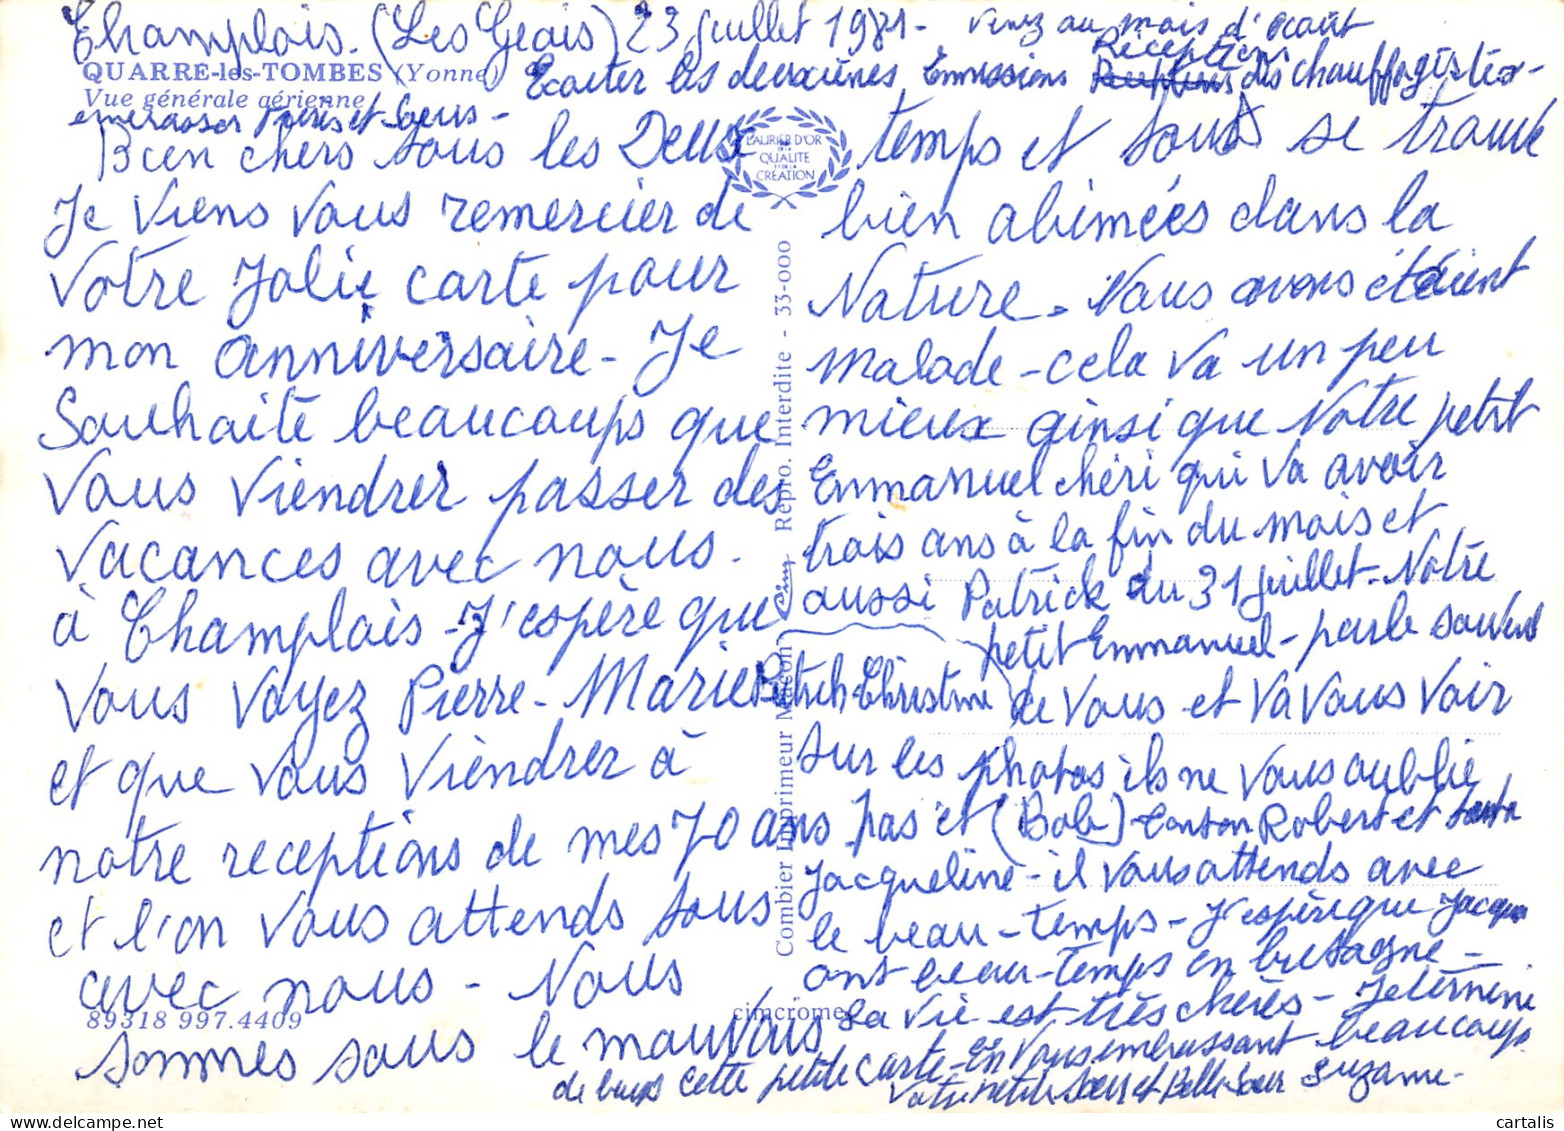 Champlois. (Les Geais) 23 juillet 1981- venez au mois d'Ocaût
QUARRE-les-TOMBES (Yonne)
Vue générale aérienne
Ecouter les deuxièmes Emmissions Réceptions des chauffagistes-
embrasser Frères et Soeurs-
LAURIER D'OR
DE LA
QUALITE
ET DE LA
CREATION
Bien chers tous les Deux
Je viens vous remercier de
votre Jolie carte pour
mon anniversaire- Je
Souhaite beaucoups que
vous viendrer passer des
vacances avec nous.
à Champlois - J'espère que
vous voyez Pierre-Marie Patrick-Christine
et que vous viendrer à
notre receptions de mes 70 ans
et l'on vous attends tous
avec nous - Nous
89318 997.4409
sommes sous le mauvais
Combier Imprimeur Mâcon
Cim
Repro. Interdite - 33-000
cimcrome
temps et tous se trouve
bien abimées dans la
Nature. Nous avons étaient
malade - cela va un peu
mieux ainsi que Notre petit
Emmanuel chéri qui va avoir
trois ans à la fin du mois et
aussi Patrick au 31 juillet. Notre
petit Emmanuel - parle souvent
de vous et va vous voir
sur les photos ils ne vous oublie
pas et (Bob) tonton Robert et tanta
Jacqueline - il vous attends avec
le beau-temps - J'espère que Jacques
ont beau-temps en bretagne -
La vie est très chères - Je termine
de bups cette petite carte - En vous embrassant beaucoups
Votre petite Soeur et Belle Soeur Suzanne-